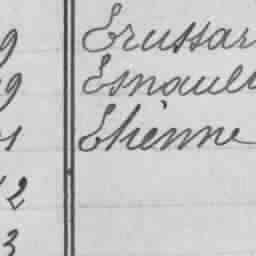 9 Erussar
9 Esnaul
1 Etiènne
12
3